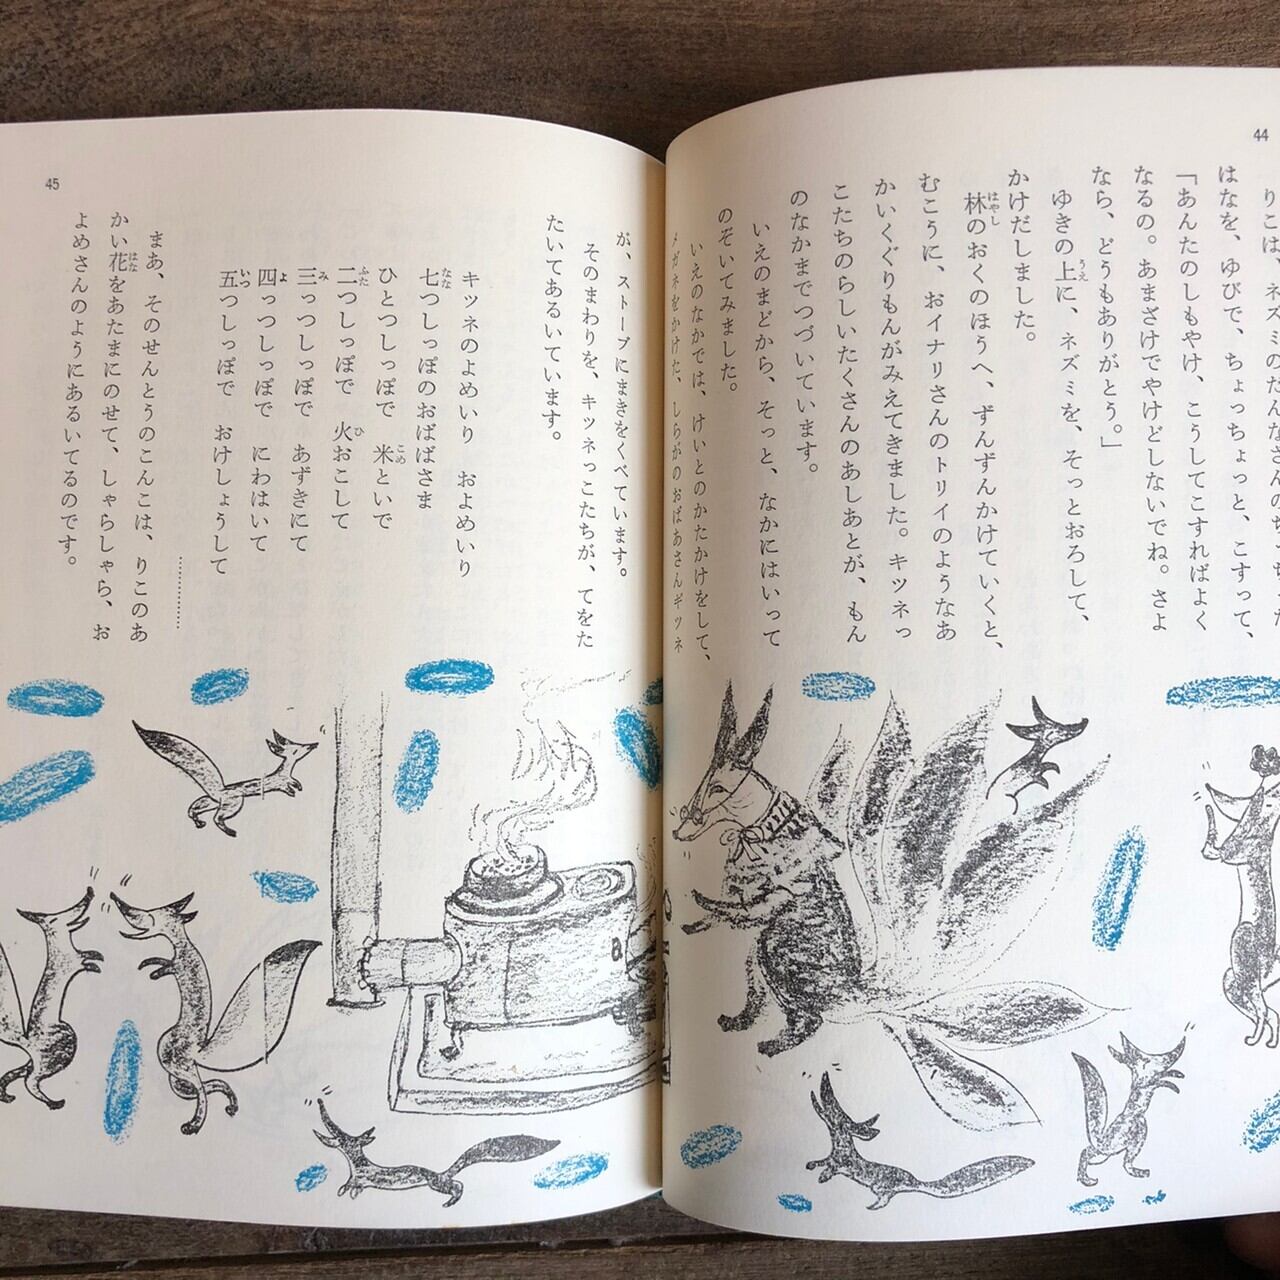 44
りこは、ネズミのだんなさんのち
はなを、ゆびで、ちょっちょっと、こすって、
「あんたのしもやけ、こうしてこすればよく
なるの。あまざけでやけどしないでね。さよ
なら、どうもありがとう。」
ゆきの上に、ネズミを、そっとおろして、
かけだしました。
林のおくのほうへ、ずんずんかけていくと、
むこうに、おイナリさんのトリイのようなあ
かいくぐりもんがみえてきました。キツネっ
こたちのらしいたくさんのあしあとが、もん
のなかまでつづいています。
いえのまどから、そっと、なかにはいって
のぞいてみました。
いえのなかでは、けいとのかたかけをして、
メガネをかけた、しらがのおばあさんギツネ
45
が、ストーブにまきをくべています。
そのまわりを、キツネっこたちが、てをた
たいてあるいています。
キツネのよめいり　およめいり
七つしっぽのおばばさま
ひとつしっぽで　米といで
二つしっぽで　火おこして
三っつしっぽで　あずきにて
四っつしっぽで　にわはいて
五つしっぽで　おけしょうして
…………
まあ、そのせんとうのこんこは、りこのあ
かい花をあたまにのせて、しゃらしゃら、お
よめさんのようにあるいてるのです。